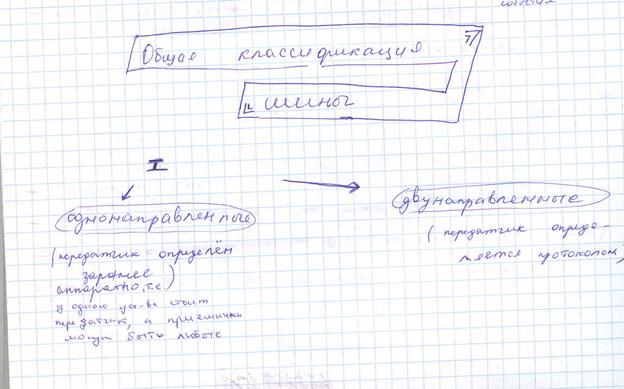 Общая классификация
шины
I
однонаправленные
двунаправленные
(передатчик определён
заранее
аппаратно, т.е.)
у одного уст-ва стоит
передатчик, а приёмники
могут быть любые
(передатчик опреде-
ляется протоколом)